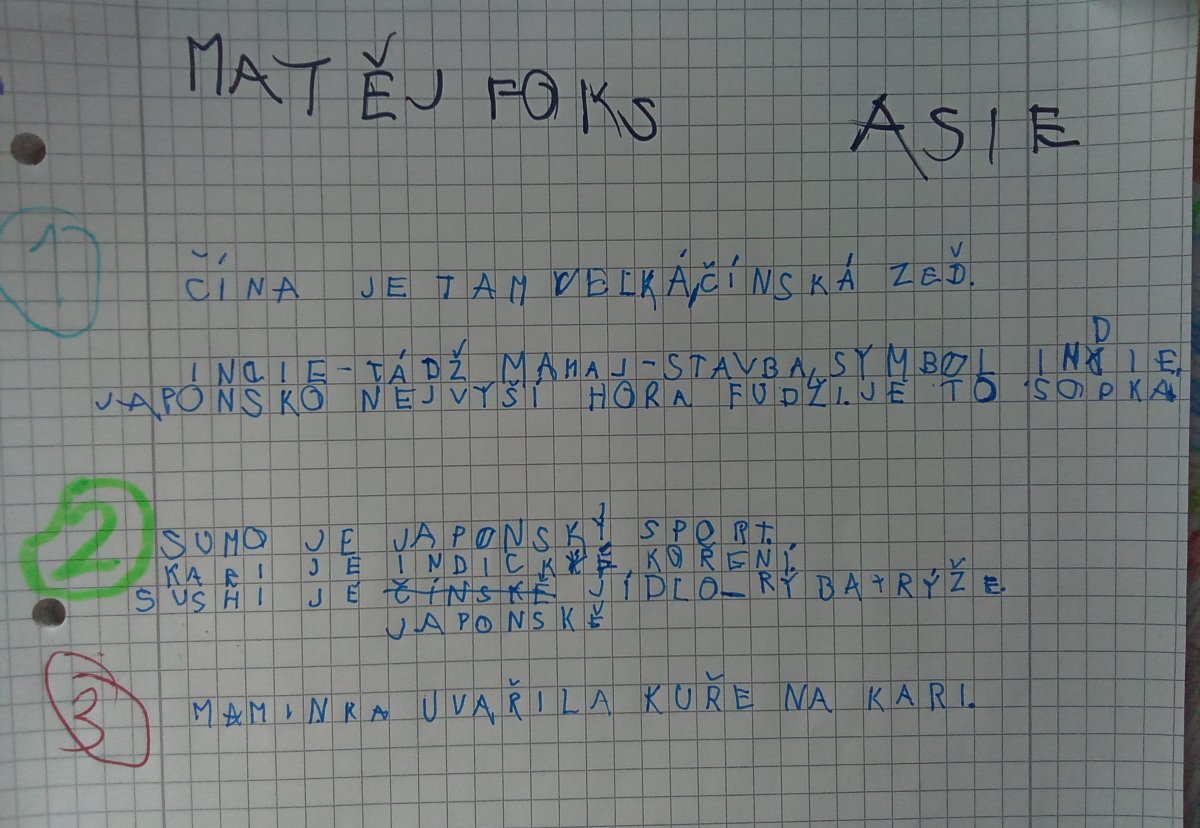 MATĚJ FOKS ASIE
1
ČÍNA JE TAM VELKÁ,ČÍNSKÁ ZEĎ.
INDIE-TÁDŽ MAHAJ-STAVBA,SYMBOL INDIE.
JAPONSKO NEJVYŠÍ HORA FUDŽI.JE TO SOPKA.
2
SUMO JE JAPONSKÝ SPORT.
KARI JE INDICKÉ KOŘENÍ.
SUSHI JE ČÍNSKÉ JÍDLO-RYBA+RÝŽE.
JAPONSKÉ
3
MAMINKA UVAŘILA KUŘE NA KARI.